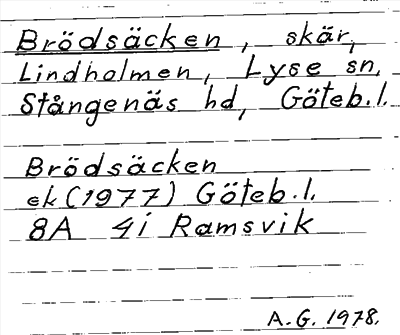 Brödsäcken, skär,
Lindholmen, Lyse sn,
Stångenäs hd, Göteb.l.
Brödsäcken
ek (1977) Göteb.l.
8A 4i Ramsvik
A.G. 1978.